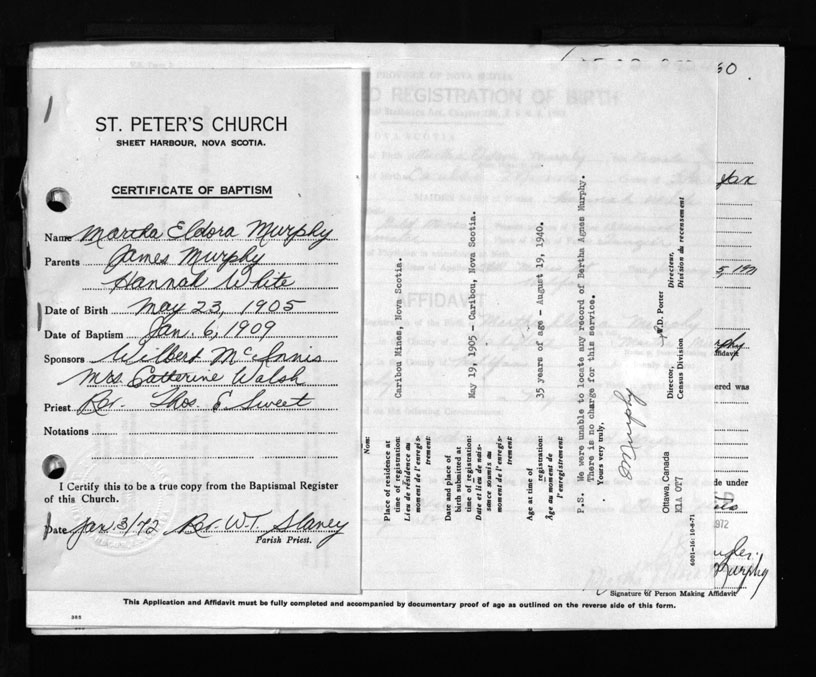 ST. PETER'S CHURCH
SHEET HARBOUR, NOVA SCOTIA.
CERTIFICATE OF BAPTISM
Name Martha Eldora Murphy
Parents James Murphy
Hannah White
Date of Birth May 23, 1905
Date of Baptism Jan. 6, 1909
Sponsors Wilbert McInnis
Mrs. Catherine Walsh
Priest Rev. Thos. E. Sweet
Notations
I Certify this to be a true copy from the Baptismal Register
of this Church.
Date Jan 3/72 Rev. W.T. Slaney
Parish Priest.
PROVINCE OF NOVA SCOTIA
REGISTRATION OF BIRTH
AFFIDAVIT
Nom:
Place of residence at
time of registration: Caribou Mines, Nova Scotia.
Lieu de résidence au
moment de l'enregis-
trement:
Date and place of
birth submitted at
time of registration: May 19, 1905 - Caribou, Nova Scotia.
Date et lieu de nais-
sance soumis au
moment de l'enregis-
trement:
Age at time of
registration: 35 years of age - August 19, 1940.
Âge au moment de
l'enregistrement:
P.S. We were unable to locate any record of Bertha Agnes Murphy.
There is no charge for this service.
Yours very truly,
Murphy
W.D. Porter
Director, Directeur,
Census Division Division du recensement
Ottawa, Canada
K1A 0T7
6001-16: 10-8-71
60.
fax
5, 1971
phy
ffidavit
ered was
de under
1972
Murphy
Signature of Person Making Affidavit
This Application and Affidavit must be fully completed and accompanied by documentary proof of age as outlined on the reverse side of this form.
385